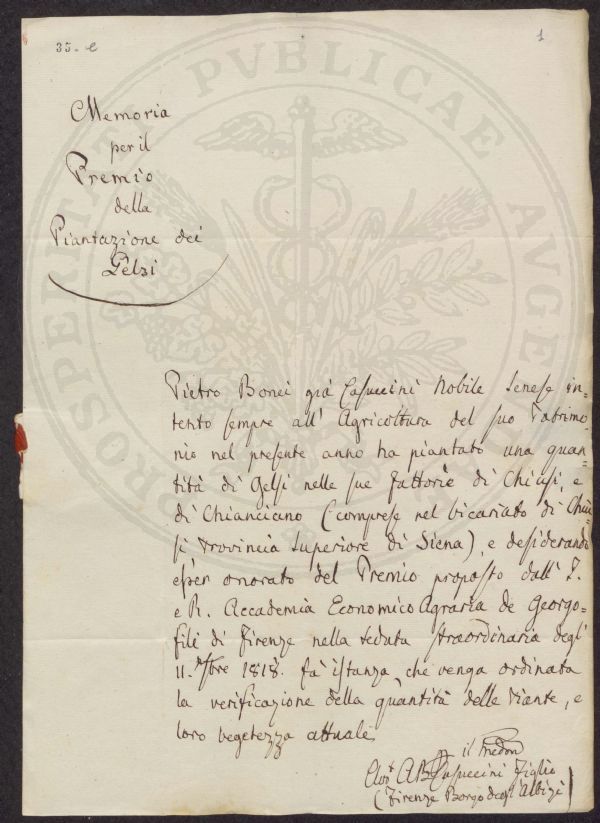 35. e
1
Memoria
per il
Premio
della
Piantazione dei
Gelsi
Pietro Bonci già Casuccini Nobile Senese in=
tento sempre all' Agricoltura del suo Patrimo=
nio nel presente anno ha piantato una quan=
tità di Gelsi nelle sue fattorie di Chiusi, e
di Chianciano (comprese nel vicariato di Chiu=
si Provincia Superiore di Siena), e desiderando
esser onorato del Premio proposto dall' I.
e R. Accademia Economico Agraria de Georgo=
fili di Firenze nella seduta straordinaria degl'
11. 9bre 1818. fa istanza, che venga ordinata
la verificazione della quantità delle Piante, e
loro vegetezza attuale
il med.
A. B. Casuccini Figlio
(Firenze Borgo degl' Albizi)
PROSPERITATI PVBLICAE AVGE